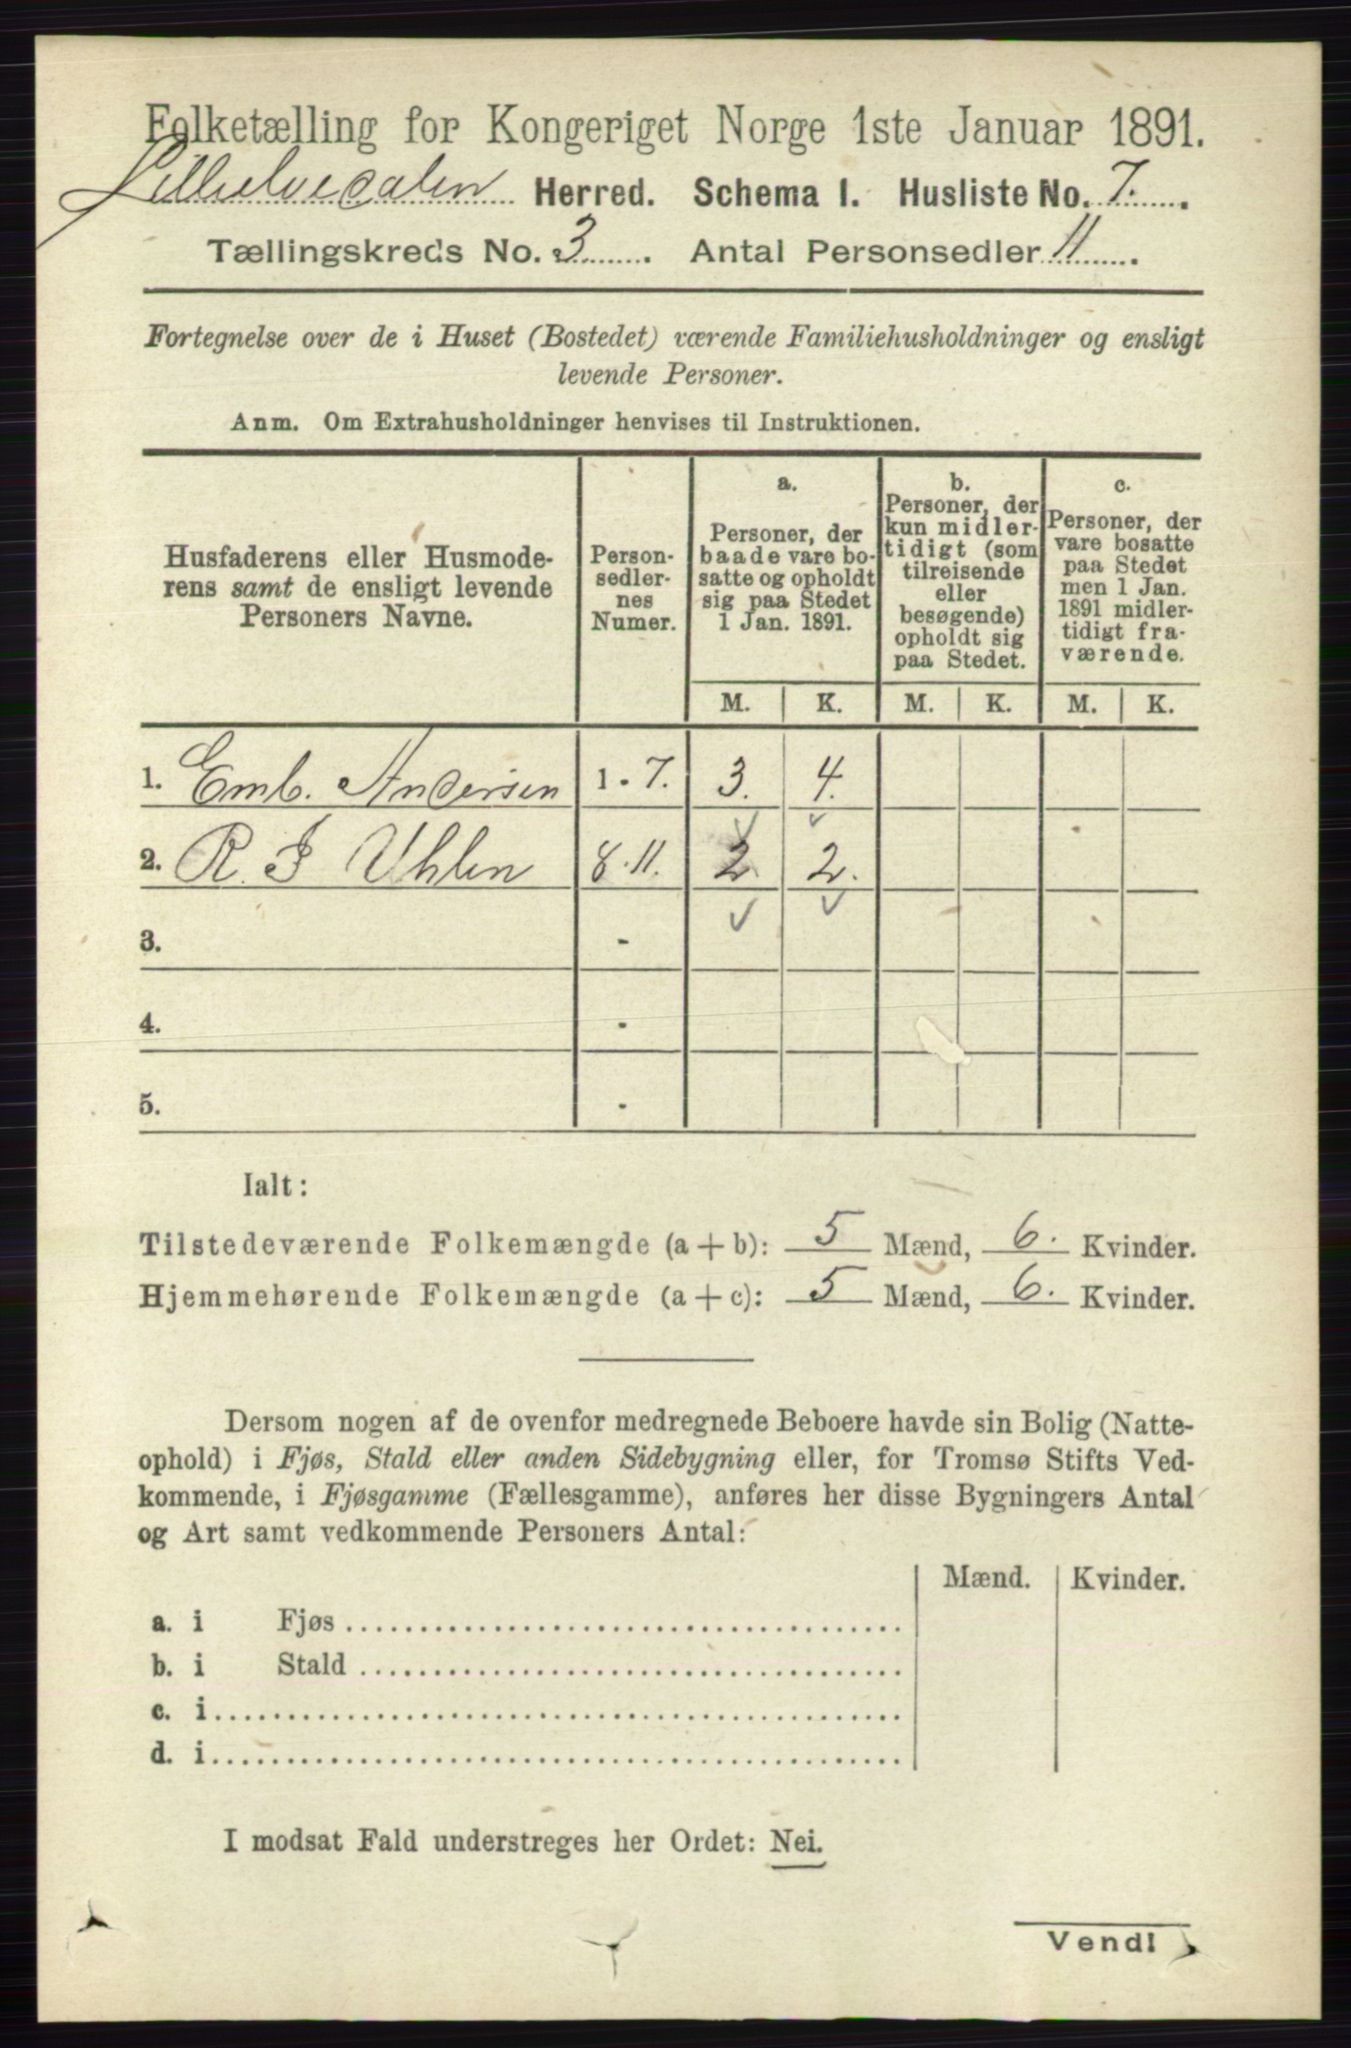 Folketælling for Kongeriget Norge 1ste Januar 1891.
Lilleelvedalen Herred. Schema I. Husliste No. 7.
Tællingskreds No. 3. Antal Personsedler 11.
Fortegnelse over de i Huset (Bostedet) værende Familiehusholdninger og ensligt
levende Personer.
Anm. Om Extrahusholdninger henvises til Instruktionen.
Husfaderens eller Husmode-
rens samt de ensligt levende
Personers Navne.
Person-
sedler-
nes
Numer.
a.
Personer, der
baade vare bo-
satte og opholdt
sig paa Stedet
1 Jan. 1891.
b.
Personer, der
kun midler-
tidigt (som
tilreisende
eller
besøgende)
opholdt sig
paa Stedet.
c.
Personer, der
vare bosatte
paa Stedet
men 1 Jan.
1891 midler-
tidigt fra-
værende.
M. K. M. K. M. K.
1. Emb. Andersen 1 - 7. 3. 4.
2. R. I Uhlen 8 - 11. 2 2.
3. -
4. -
5. -
Ialt:
Tilstedeværende Folkemængde (a + b): 5 Mænd, 6. Kvinder.
Hjemmehørende Folkemængde (a + c): 5 Mænd, 6. Kvinder.
Dersom nogen af de ovenfor medregnede Beboere havde sin Bolig (Natte-
ophold) i Fjøs, Stald eller anden Sidebygning eller, for Tromsø Stifts Ved-
kommende, i Fjøsgamme (Fællesgamme), anføres her disse Bygningers Antal
og Art samt vedkommende Personers Antal:
Mænd. Kvinder.
a. i Fjøs
b. i Stald
c. i
d. i
I modsat Fald understreges her Ordet: Nei.
Vend!